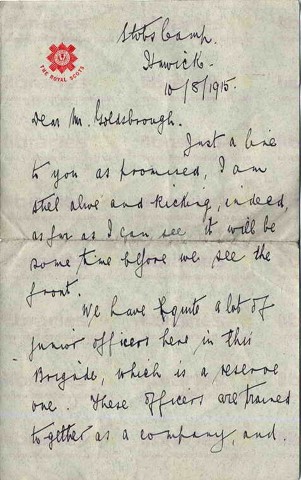 THE ROYAL SCOTS
Stobs Camp.
Hawick.
10/8/1915.
Dear Mr. Goldsbrough.
Just a line
to you as promised, I am
still alive and kicking, indeed,
as far as I can see it will be
some time before we see the
front.
We have quite a lot of
junior officers here in this
Brigade, which is a reserve
one. These officers are trained
together as a company, and.